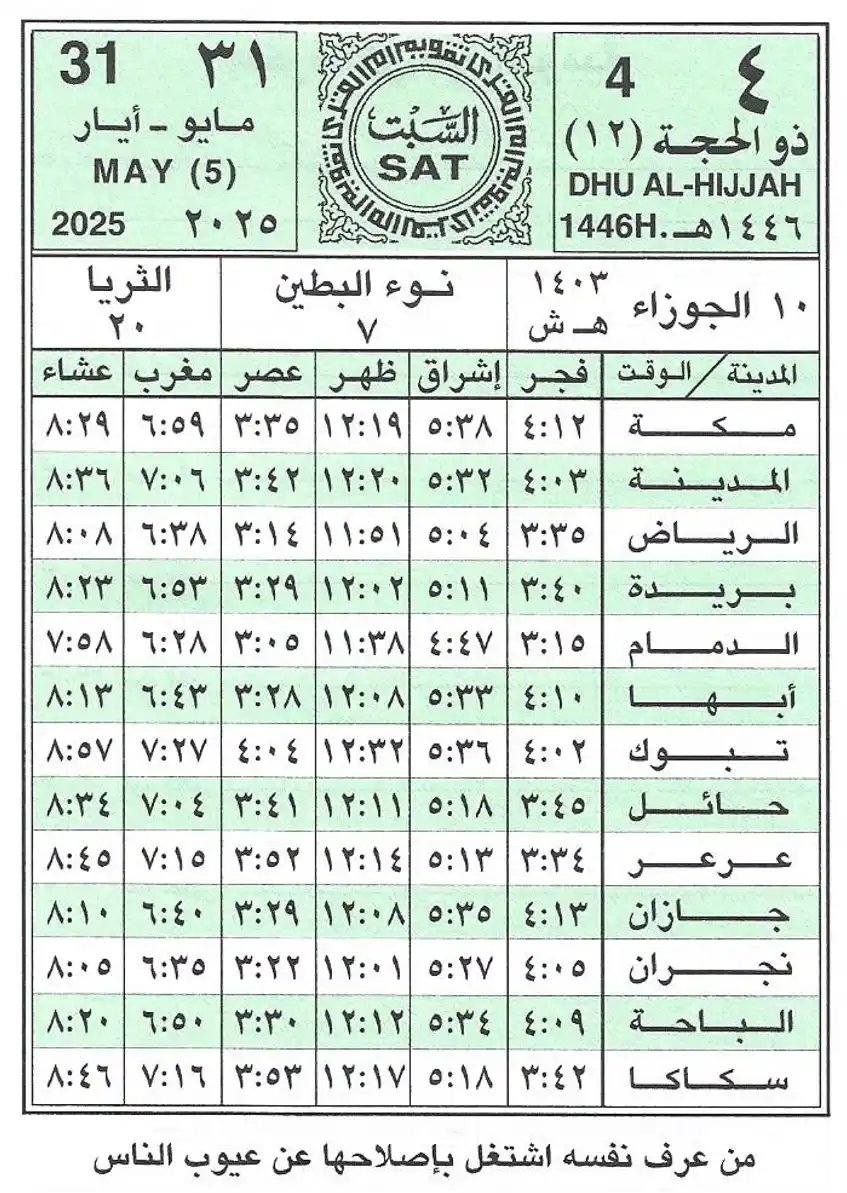 ٤ 4
ذو الحجة (١٢)
DHU AL-HIJJAH
1446H. ١٤٤٦هـ
السَّبْت
SAT
31 ٣١
مايو - أيار
MAY (5)
2025 ٢٠٢٥
١٠ الجوزاء ١٤٠٣ هـ ش
نوء البطين
٧
الثريا
٢٠
المدينة / الوقت فجر إشراق ظهر عصر مغرب عشاء
مكة ٤:١٢ ٥:٣٨ ١٢:١٩ ٣:٣٥ ٦:٥٩ ٨:٢٩
المدينة ٤:٠٣ ٥:٣٢ ١٢:٢٠ ٣:٤٢ ٧:٠٦ ٨:٣٦
الرياض ٣:٣٥ ٥:٠٤ ١١:٥١ ٣:١٤ ٦:٣٨ ٨:٠٨
بريدة ٣:٤٠ ٥:١١ ١٢:٠٢ ٣:٢٩ ٦:٥٣ ٨:٢٣
الدمام ٣:١٥ ٤:٤٧ ١١:٣٨ ٣:٠٥ ٦:٢٨ ٧:٥٨
أبها ٤:١٠ ٥:٣٣ ١٢:٠٨ ٣:٢٨ ٦:٤٣ ٨:١٣
تبوك ٤:٠٢ ٥:٣٦ ١٢:٣٢ ٤:٠٤ ٧:٢٧ ٨:٥٧
حائل ٣:٤٥ ٥:١٨ ١٢:١١ ٣:٤١ ٧:٠٤ ٨:٣٤
عرعر ٣:٣٤ ٥:١٣ ١٢:١٤ ٣:٥٢ ٧:١٥ ٨:٤٥
جازان ٤:١٣ ٥:٣٥ ١٢:٠٨ ٣:٢٩ ٦:٤٠ ٨:١٠
نجران ٤:٠٥ ٥:٢٧ ١٢:٠١ ٣:٢٢ ٦:٣٥ ٨:٠٥
الباحة ٤:٠٩ ٥:٣٤ ١٢:١٢ ٣:٣٠ ٦:٥٠ ٨:٢٠
سكاكا ٣:٤٢ ٥:١٨ ١٢:١٧ ٣:٥٣ ٧:١٦ ٨:٤٦
من عرف نفسه اشتغل بإصلاحها عن عيوب الناس